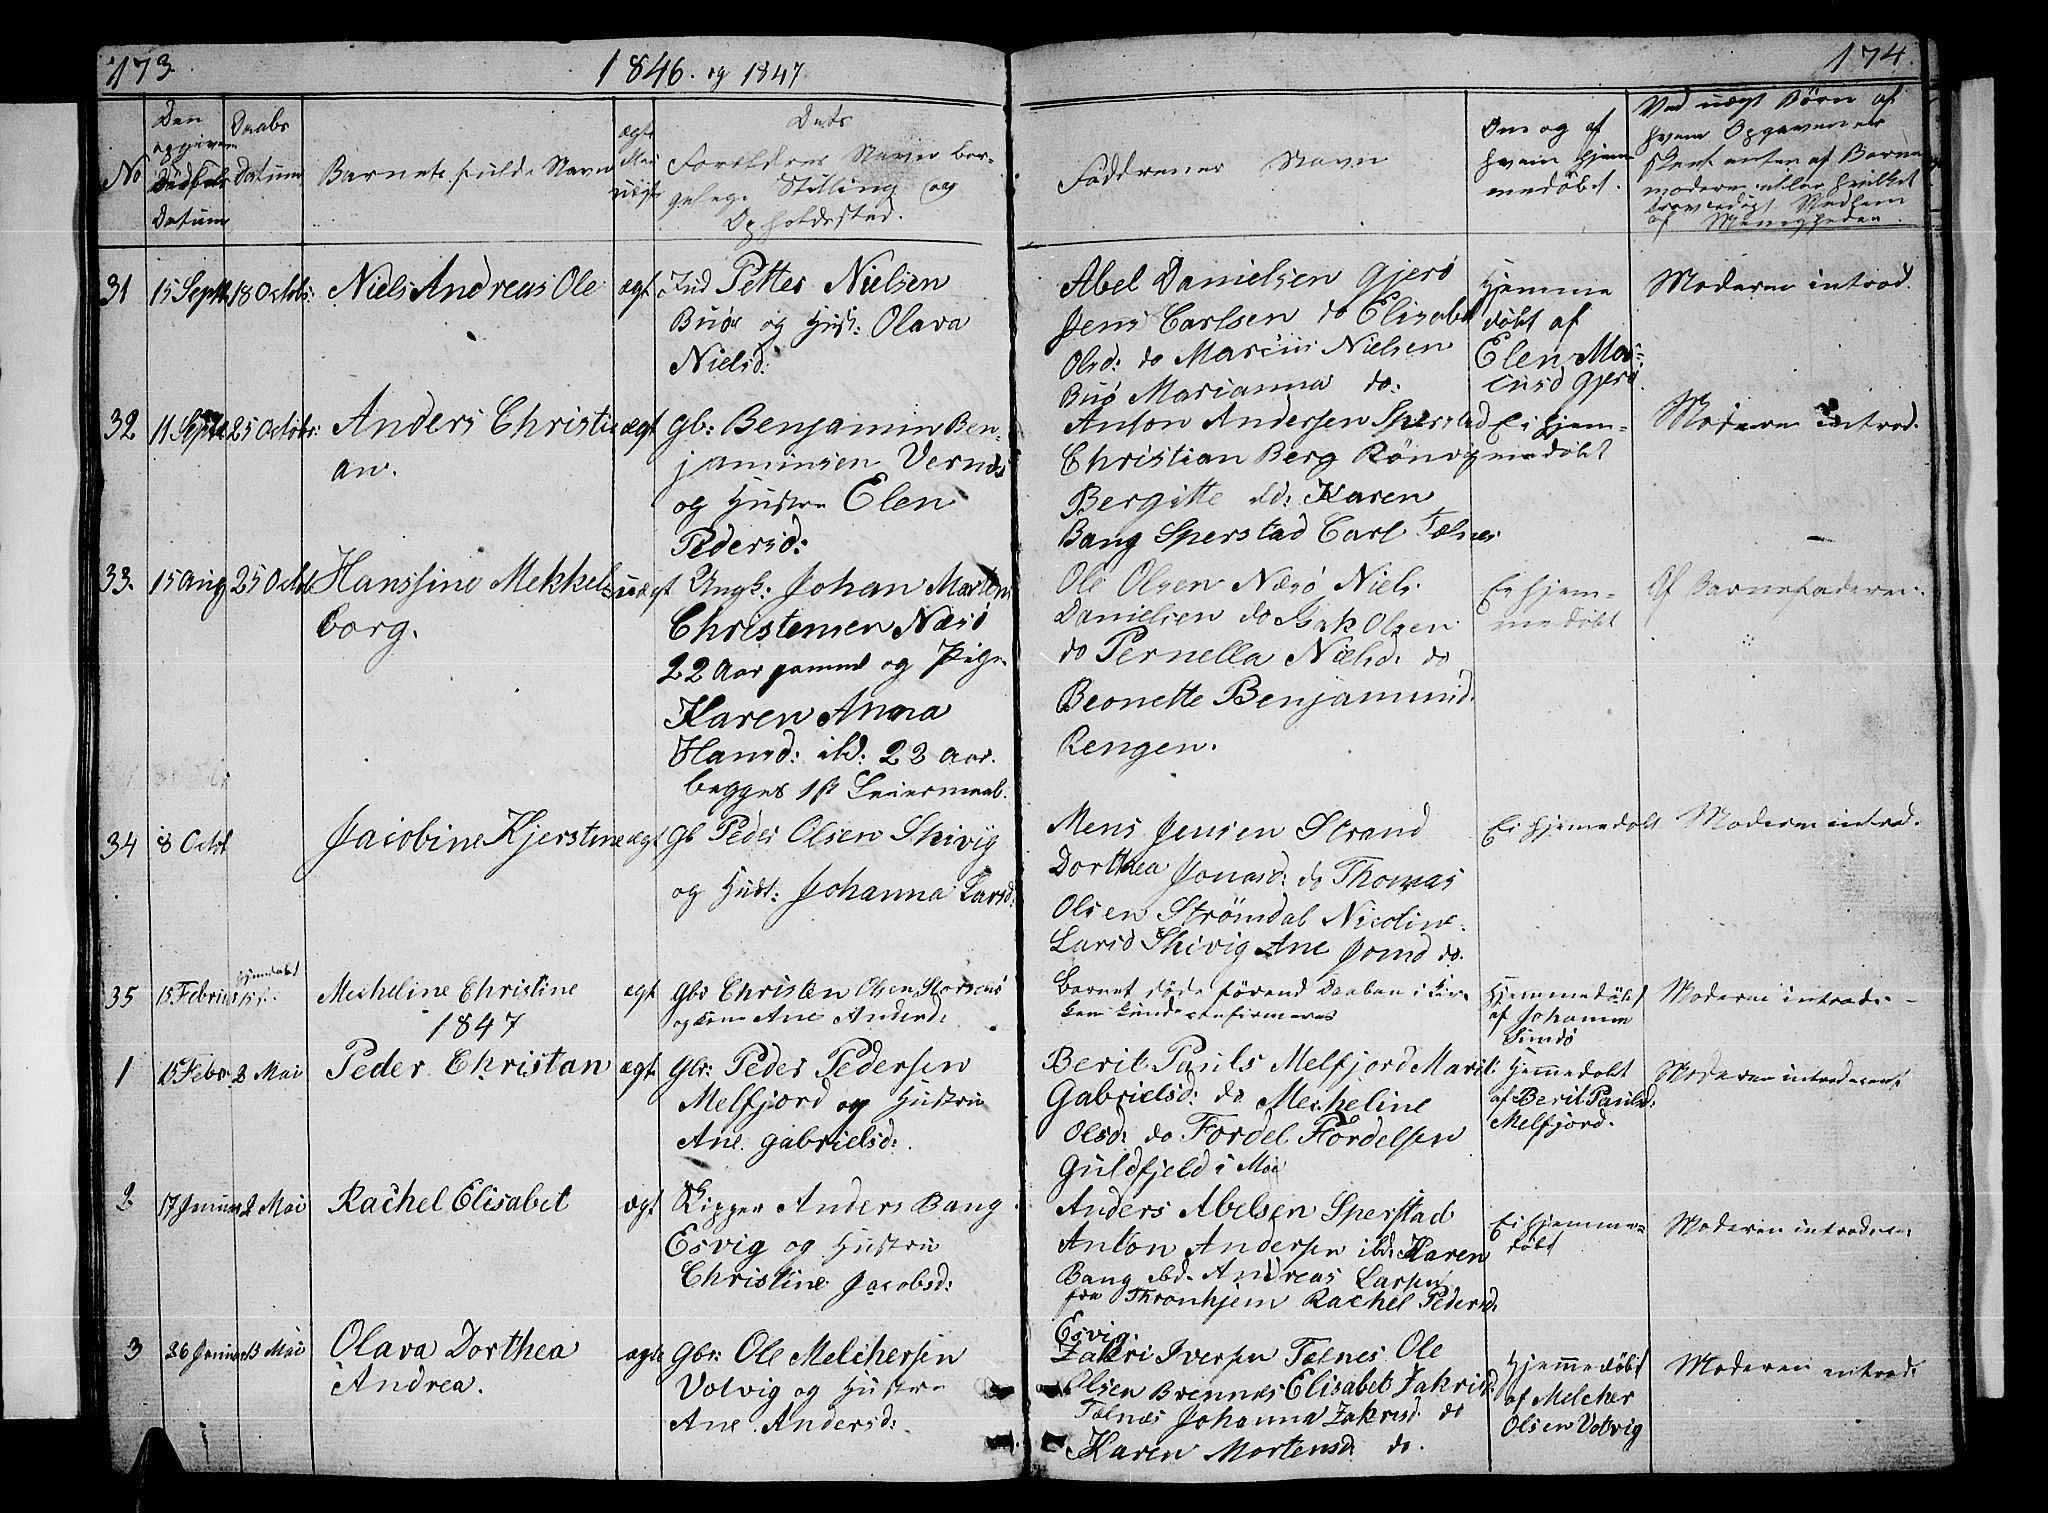 173
1846. og 1847
174.
No
Den opgivne Födsels Datum
Daabs Datum
Barnets fulde Navn
ægte eller uægte
Dets Foreldres Navn bor-
gelege Stilling og
Opholdssted.
Faddrenes Navn
Om og af
hvem hjem-
medöbt.
Ved uægt Börn af
hvem Opgaven er
skeet enten af Barne
moderen eller hvilket
troverdigt Medlem
af Menigheden.
31 15 Septb 18 Octobr: Niels Andreas Ole ægt Ind Petter Nielsen
Buöe og Hust: Olava
Nielsd:
Abel Danielsen Gjerö
Jens Carlsen do Elisabet
Olsd: do Marcius Nielsen
Buö Marianna do:
Hjemme
döbt af
Elen Mar-
cusd Gjerö.
Moderen introd.
32 11 Septb 25 Octobr: Anders Christi
an.
ægt Gb: Benjamin Ben-
jaminsen Vernes
og Hustru Elen
Pedersd:
Anton Andersen Sperstad
Christian Berg Rönvig
Bergitte ibd: Karen
Bang Sperstad Carl Tælnes
Ei hjem-
medöbt
Moderen introd.
33. 15 Aug 25 Octob Hansine Mekkel-
borg.
uægt Ungk: Johan Morten
Christensen Næsö
22 Aar gammel og Pige
Karen Anna
Hansd: ibd: 23 Aar.
begges 1ste Leiermaal.
Ole Olsen Næsö Niels
Danielsen do Isak Olsen
do Pernella Nielsd: do
Beonette Benjaminsd.
Rengen.
Ei hjem-
medöbt
Af Barnefaderen.
34 8 Octb Jacobine Kjerstine ægt Gb Peder Olsen Skivig
og Hust: Johanna Larsd:
Mens Jensen Strand
Dorthea Jonasd: do Thomas
Olsen Strömdal Nicoline
Larsd Skivig Ane Jonsd do.
Ei hjemedöbt
Moderen introd.
35 15 Februar hjemedöbt Mecheline Christine ægt Gbr Christen Olsen Storsenö
og Kone Ane Andersd:
Barnet döde förend Daaben i Kir-
ken kunde confirmeres
Hjemmedöbt
af Johanna
Sundö
Moderen introd. -
1847
1 15 Febr 2 Mai Peder Christan ægt Gbr: Peder Pedersen
Melfjord og Hustru
Ane Gabrielsd:
Berit Pauls Melfjord Marit
Gabrielsd: do Mecheline
Olsd: do Fordel Fordelsen
Guldfjeld i Moe
Hjemmedöbt
af Berit Paulsd:
Melfjord.
Moderen introduceret
2 17 Januar 2 Mai Rachel Elisabet ægt Skipper Anders Bang
Esvig og Hustru
Christine Jacobsd:
Anders Abelsen Sperstad
Anton Andersen ibd: Karen
Bang ibd. Andreas Larsen
fra Thronhjem Rachel Pedersd:
Esvig.
Ei hjemme-
döbt
Moderen introduceret
3 26 Januar 13 Mai Olava Dorthea
Andrea.
ægte Gbr: Ole Melchersen
Votvig og Hustru
Ane Andersd:
Zakri Iversen Tælnes Ole
Olsen Brennæs Elisabet Zakrisd:
Tælnæs Johanna Zakrisd do
Karen Mortensd do.
Hjemmedöbt
af Melcher
Olsen Votvig
Moderen introd: